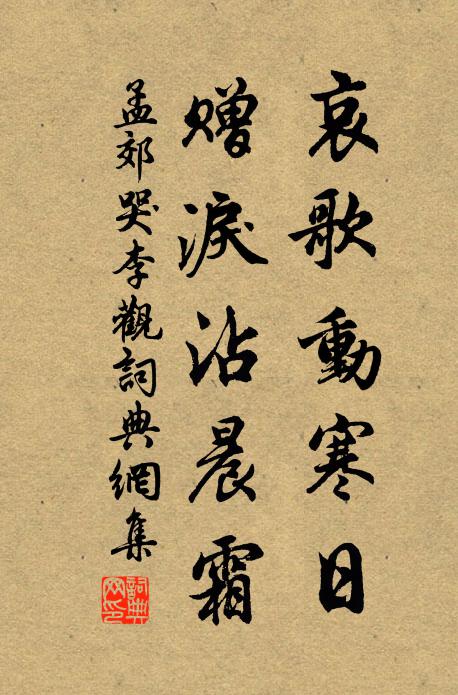 哀歌動寒日
贈淚沾晨霜
孟郊哭李觀詞典網集
詞典網印